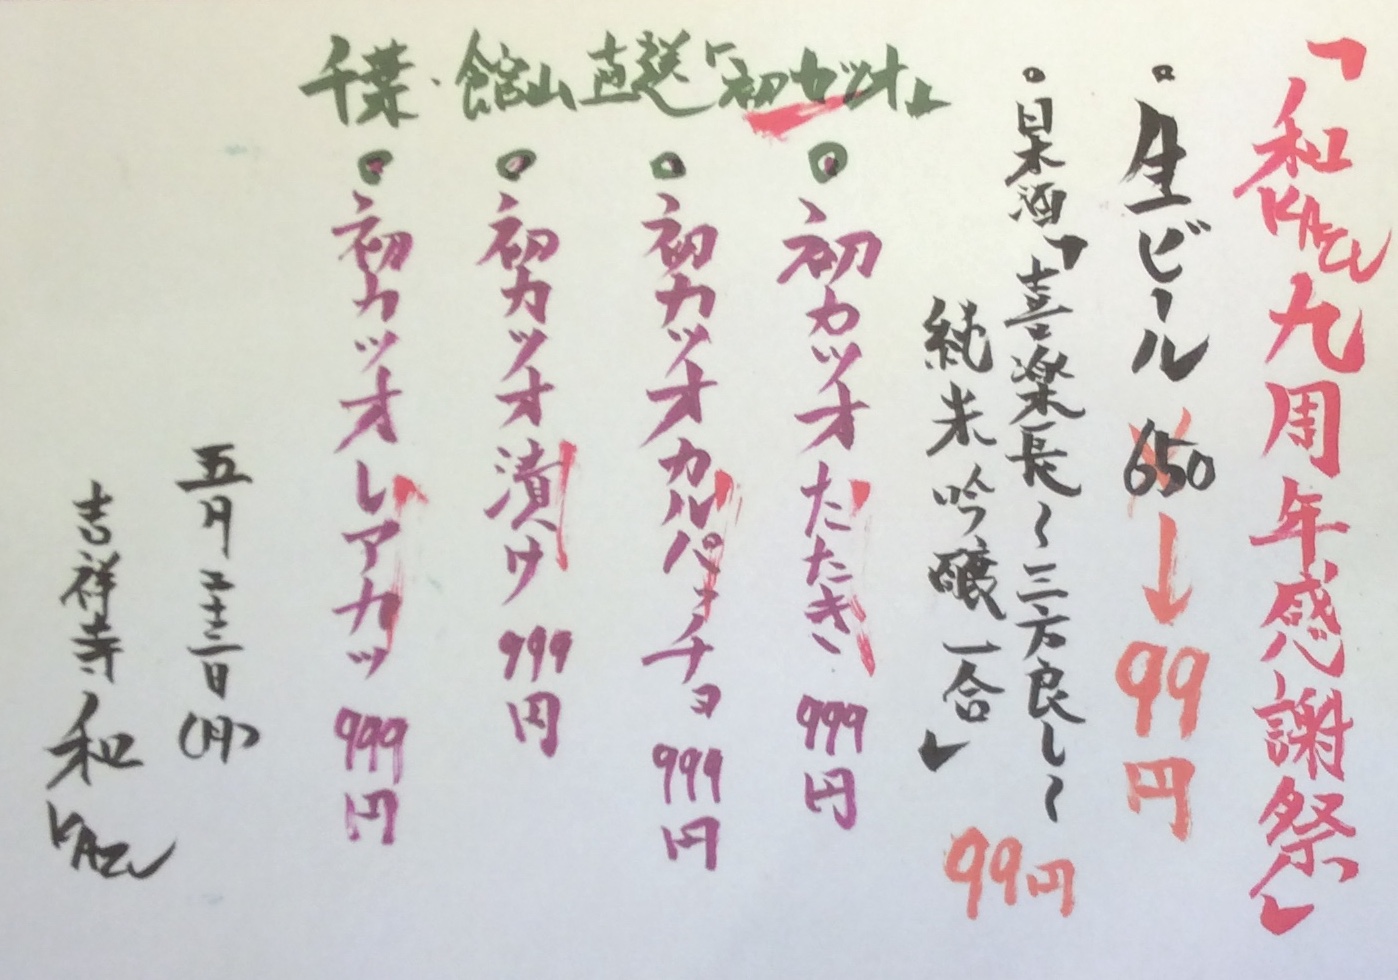 「和KAZU九周年感謝祭」
・生ビール 650→99円
・日本酒「喜楽長～三方良し～
純米吟醸一合」
99円
千葉・館山直送「初カツオ」
・初カツオたたき 999円
・初カツオカルパッチョ 999円
・初カツオ漬け 999円
・初カツオレアカツ 999円
五月二十三日(月)
吉祥寺 和KAZU